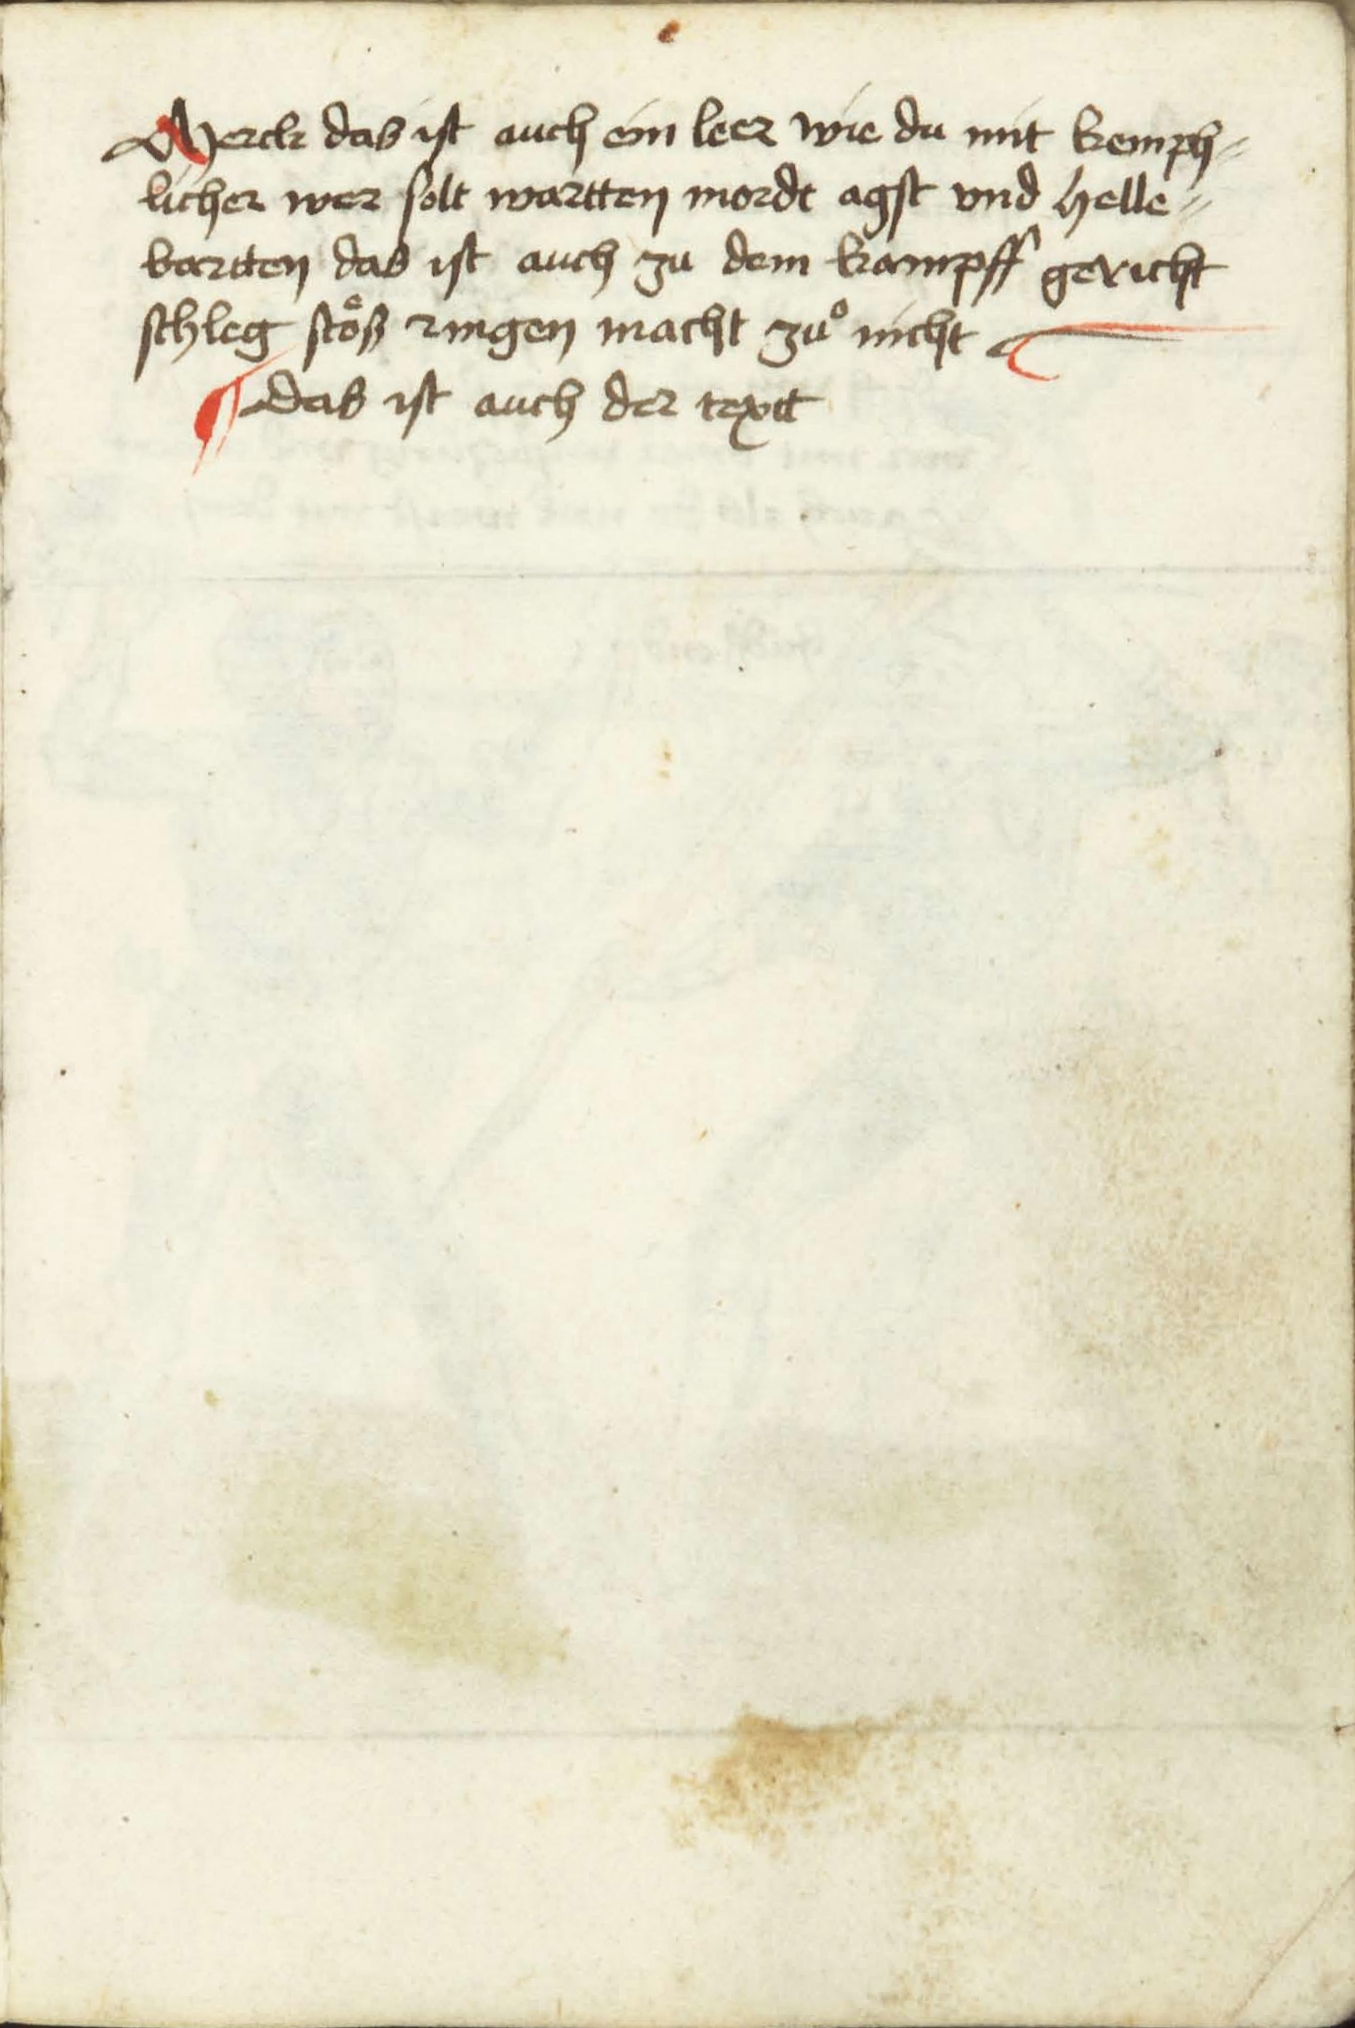 Merck das ist auch ein leer wie du mit kemph=
licher wer solt wartten mordt agst vnd helle=
bartten das ist auch zu dem kampff gericht
schleg stoͤß ringen macht zuͦ nicht
¶ Das ist auch der textt